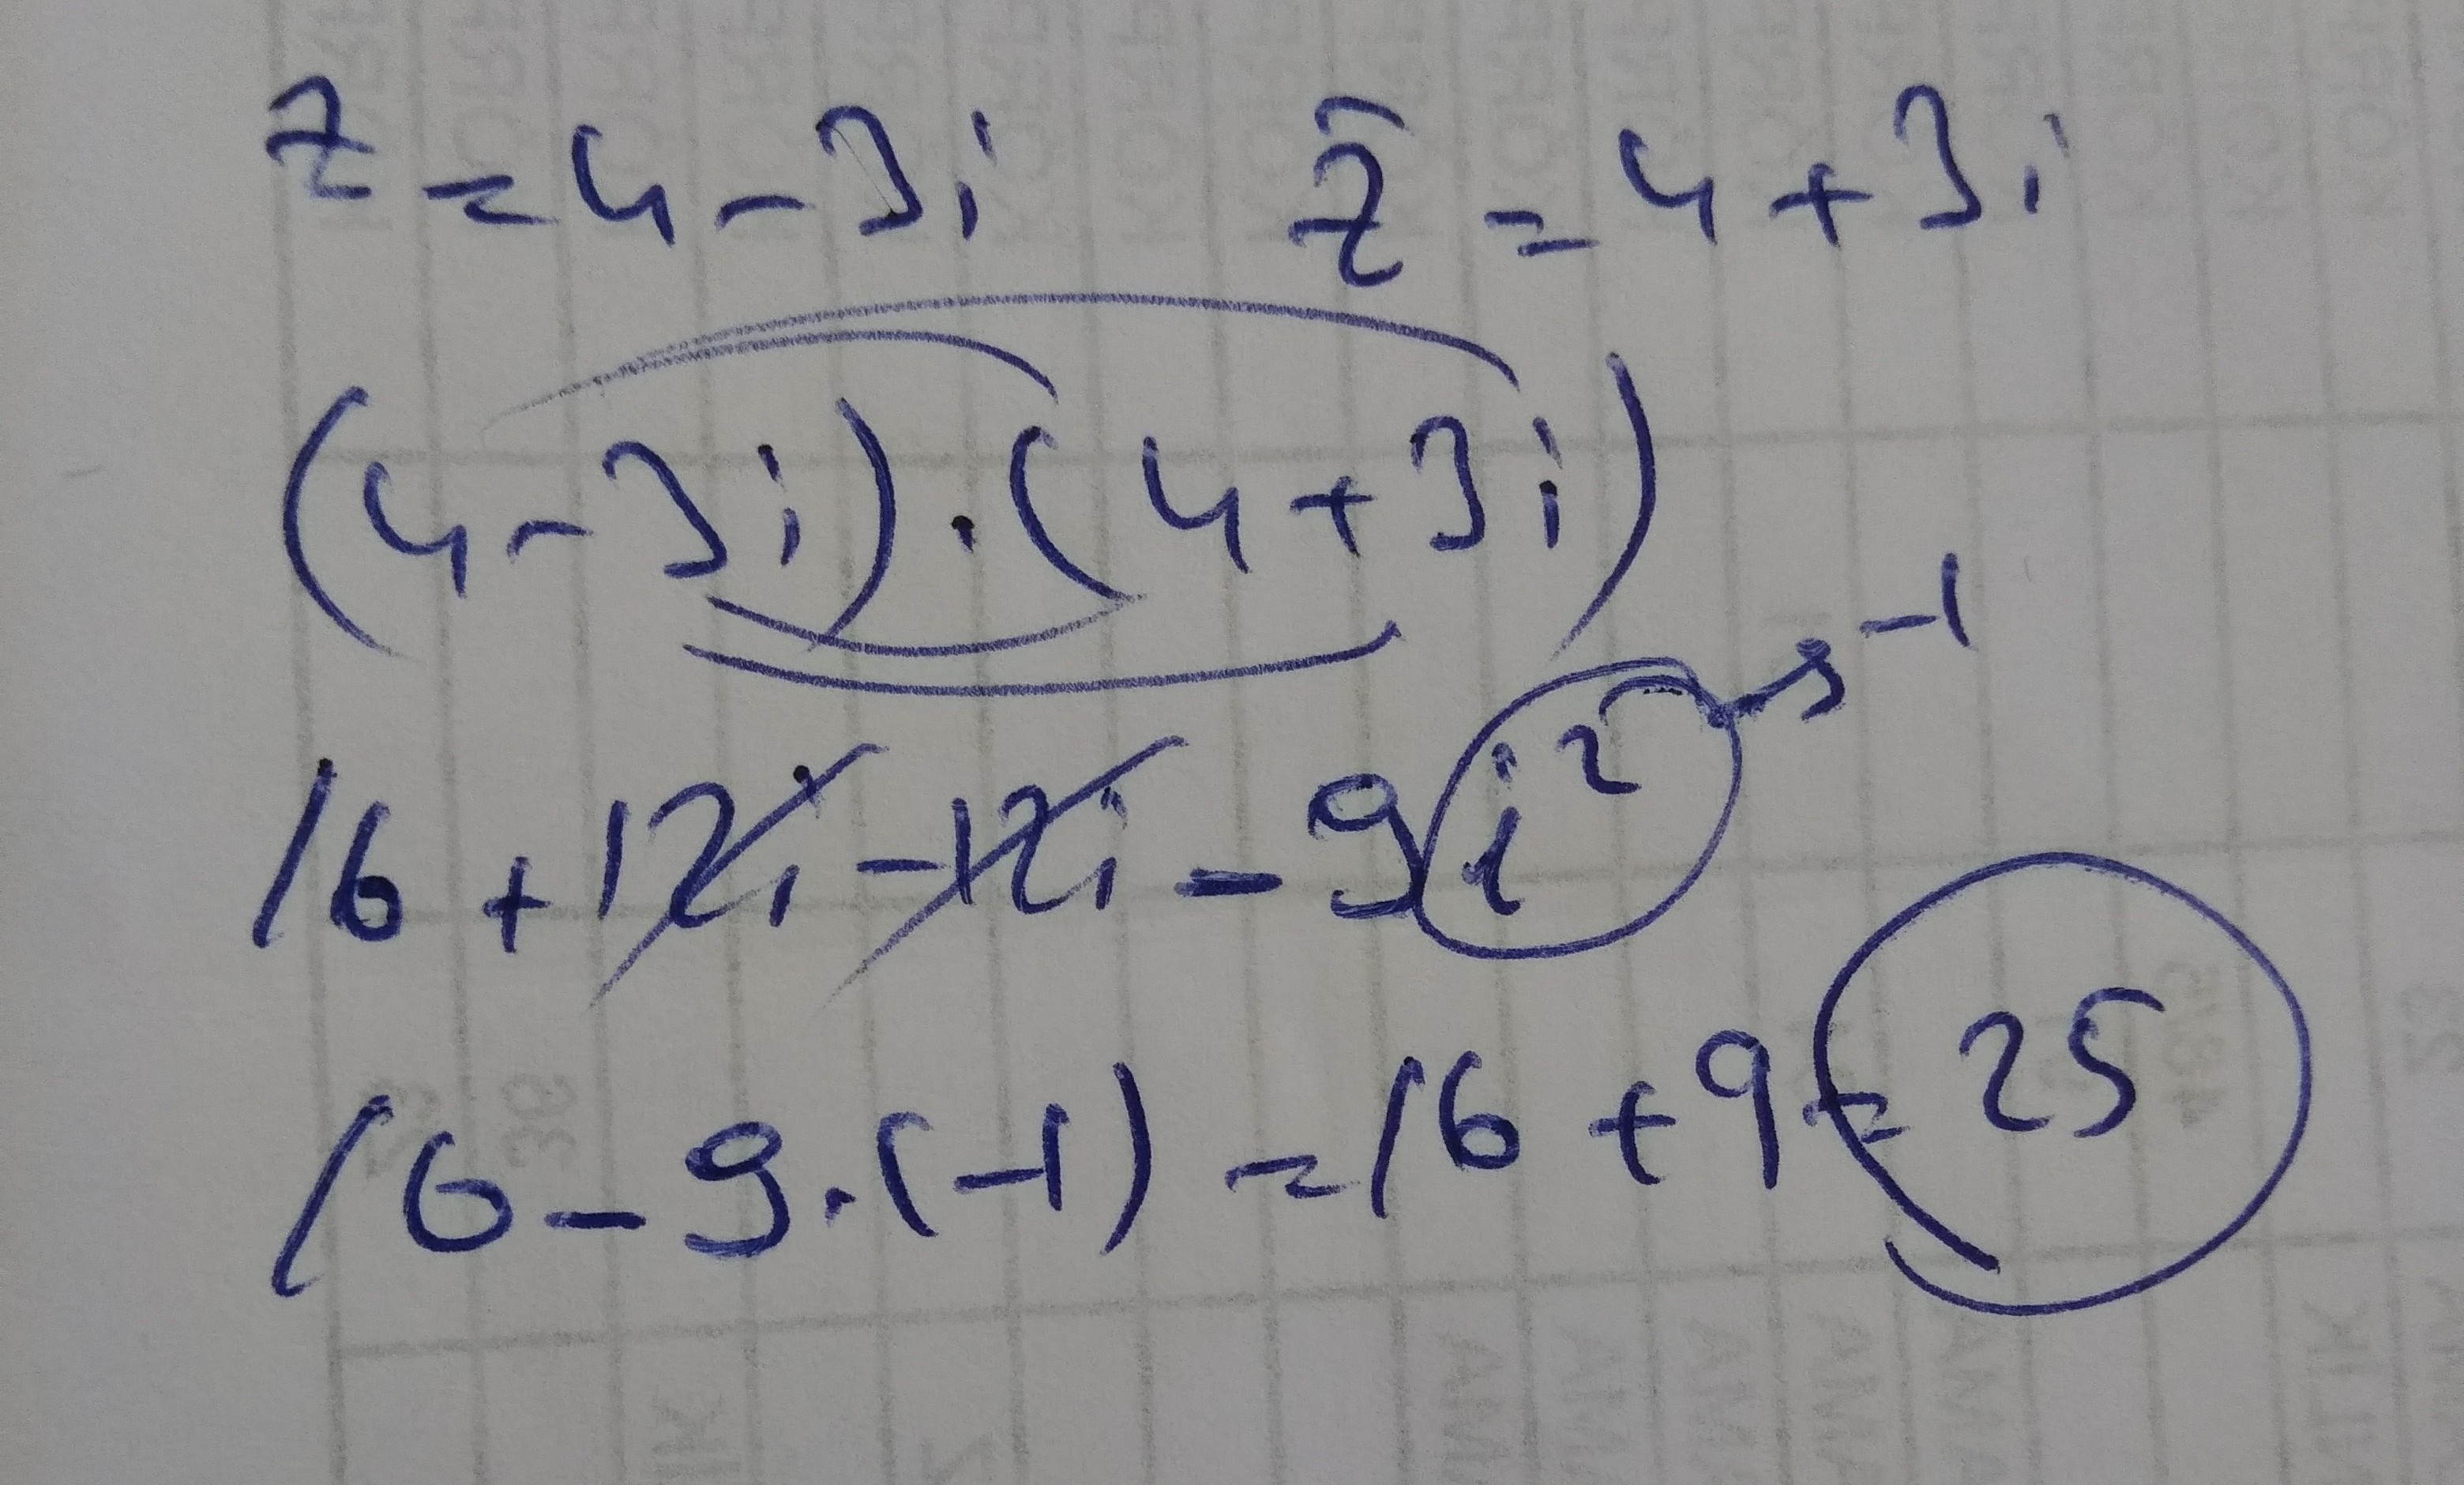 z = 4 - 3i   z̄ = 4 + 3i
(4 - 3i) · (4 + 3i)
16 + 12i - 12i - 9i² → -1
16 - 9 · (-1) = 16 + 9 = 25